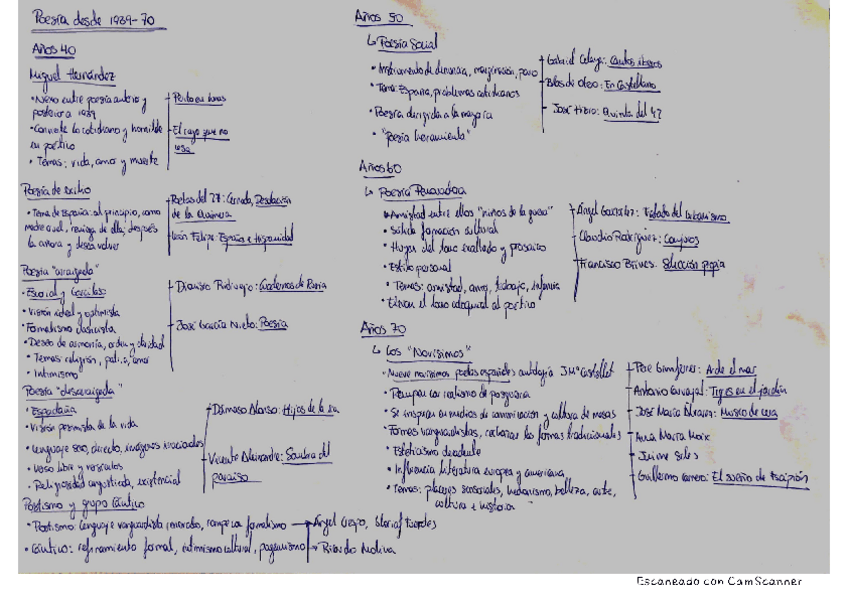 Poesía desde 1939-70
Años 40
Miguel Hernández
• Nexo entre poesía anterior y
posterior a 1939
• Convierte lo cotidiano y humilde
en poético
• Temas: vida, amor y muerte
Perito en lunas
El rayo que no
cesa
Poesía de exilio
• Tema de España: al principio, como
madre cruel, reniega de ella; después
la añora y desea volver
Poetas del 27: Cernuda, Desolación
de la Quimera
León Felipe: España e Hispanidad
Poesía "arraigada"
• Escorial y Garcilaso
• Visión ideal y optimista
• Formalismo clasicista
• Deseo de armonía, orden y claridad
• Temas: religión, patria, amor
• Intimismo
Dionisio Ridruejo: Cuadernos de Rusia
José García Nieto: Poesía
Poesía "desarraigada"
• Espadaña
• Visión pesimista de la vida
• Lenguaje seco, directo, imágenes
• Verso libre y versículos
• Religiosidad angustiada, existencial
Dámaso Alonso: Hijos de la ira
Vicente Aleixandre: Sombra del
paraíso
Postismo y grupo Cántico
• Postismo: lenguaje vanguardista renovado, rompe con formalismo → Ángel Crespo, Gloria Fuertes
• Cántico: refinamiento formal, intimismo cultural, paganismo → Ricardo Molina
Años 50
↳ Poesía Social
• Instrumento de denuncia, marginación, paro
• Tema: España, problemas cotidianos
• Poesía dirigida a la mayoría
• "poesía herramienta"
Gabriel Celaya: Cantos íberos
Blas de Otero: En Castellano
José Hierro: Quinta del 42
Años 60
↳ Poesía Renovadora
• Amistad entre ellos "niños de la guerra"
• Sólida formación cultural
• Huyen del tono exaltado y prosaico
• Estilo personal
• Temas: amistad, amor, trabajo, infancia
• Elevan el tono coloquial al poético
Ángel González: Tratado del urbanismo
Claudio Rodríguez: Conjuros
Francisco Brines: Selección propia
Años 70
↳ Los "Novísimos"
• Nueve novísimos poetas españoles antología J Mª Castellet
• Rompen con realismo de posguerra
• Se inspiran en medios de comunicación y cultura de masas
• Formas vanguardistas, rechazan las formas tradicionales
• Esteticismo decadente
• Influencia literatura europea y americana
• Temas: placeres sensoriales, hedonismo, belleza, arte,
cultura e historia
Pere Gimferrer: Arde el mar
Antonio Carvajal: Tigres en el jardín
José María Álvarez: Museo de cera
Ana María Moix
Jaime Siles
Guillermo Carnero: El sueño de Escipión
Escaneado con CamScanner